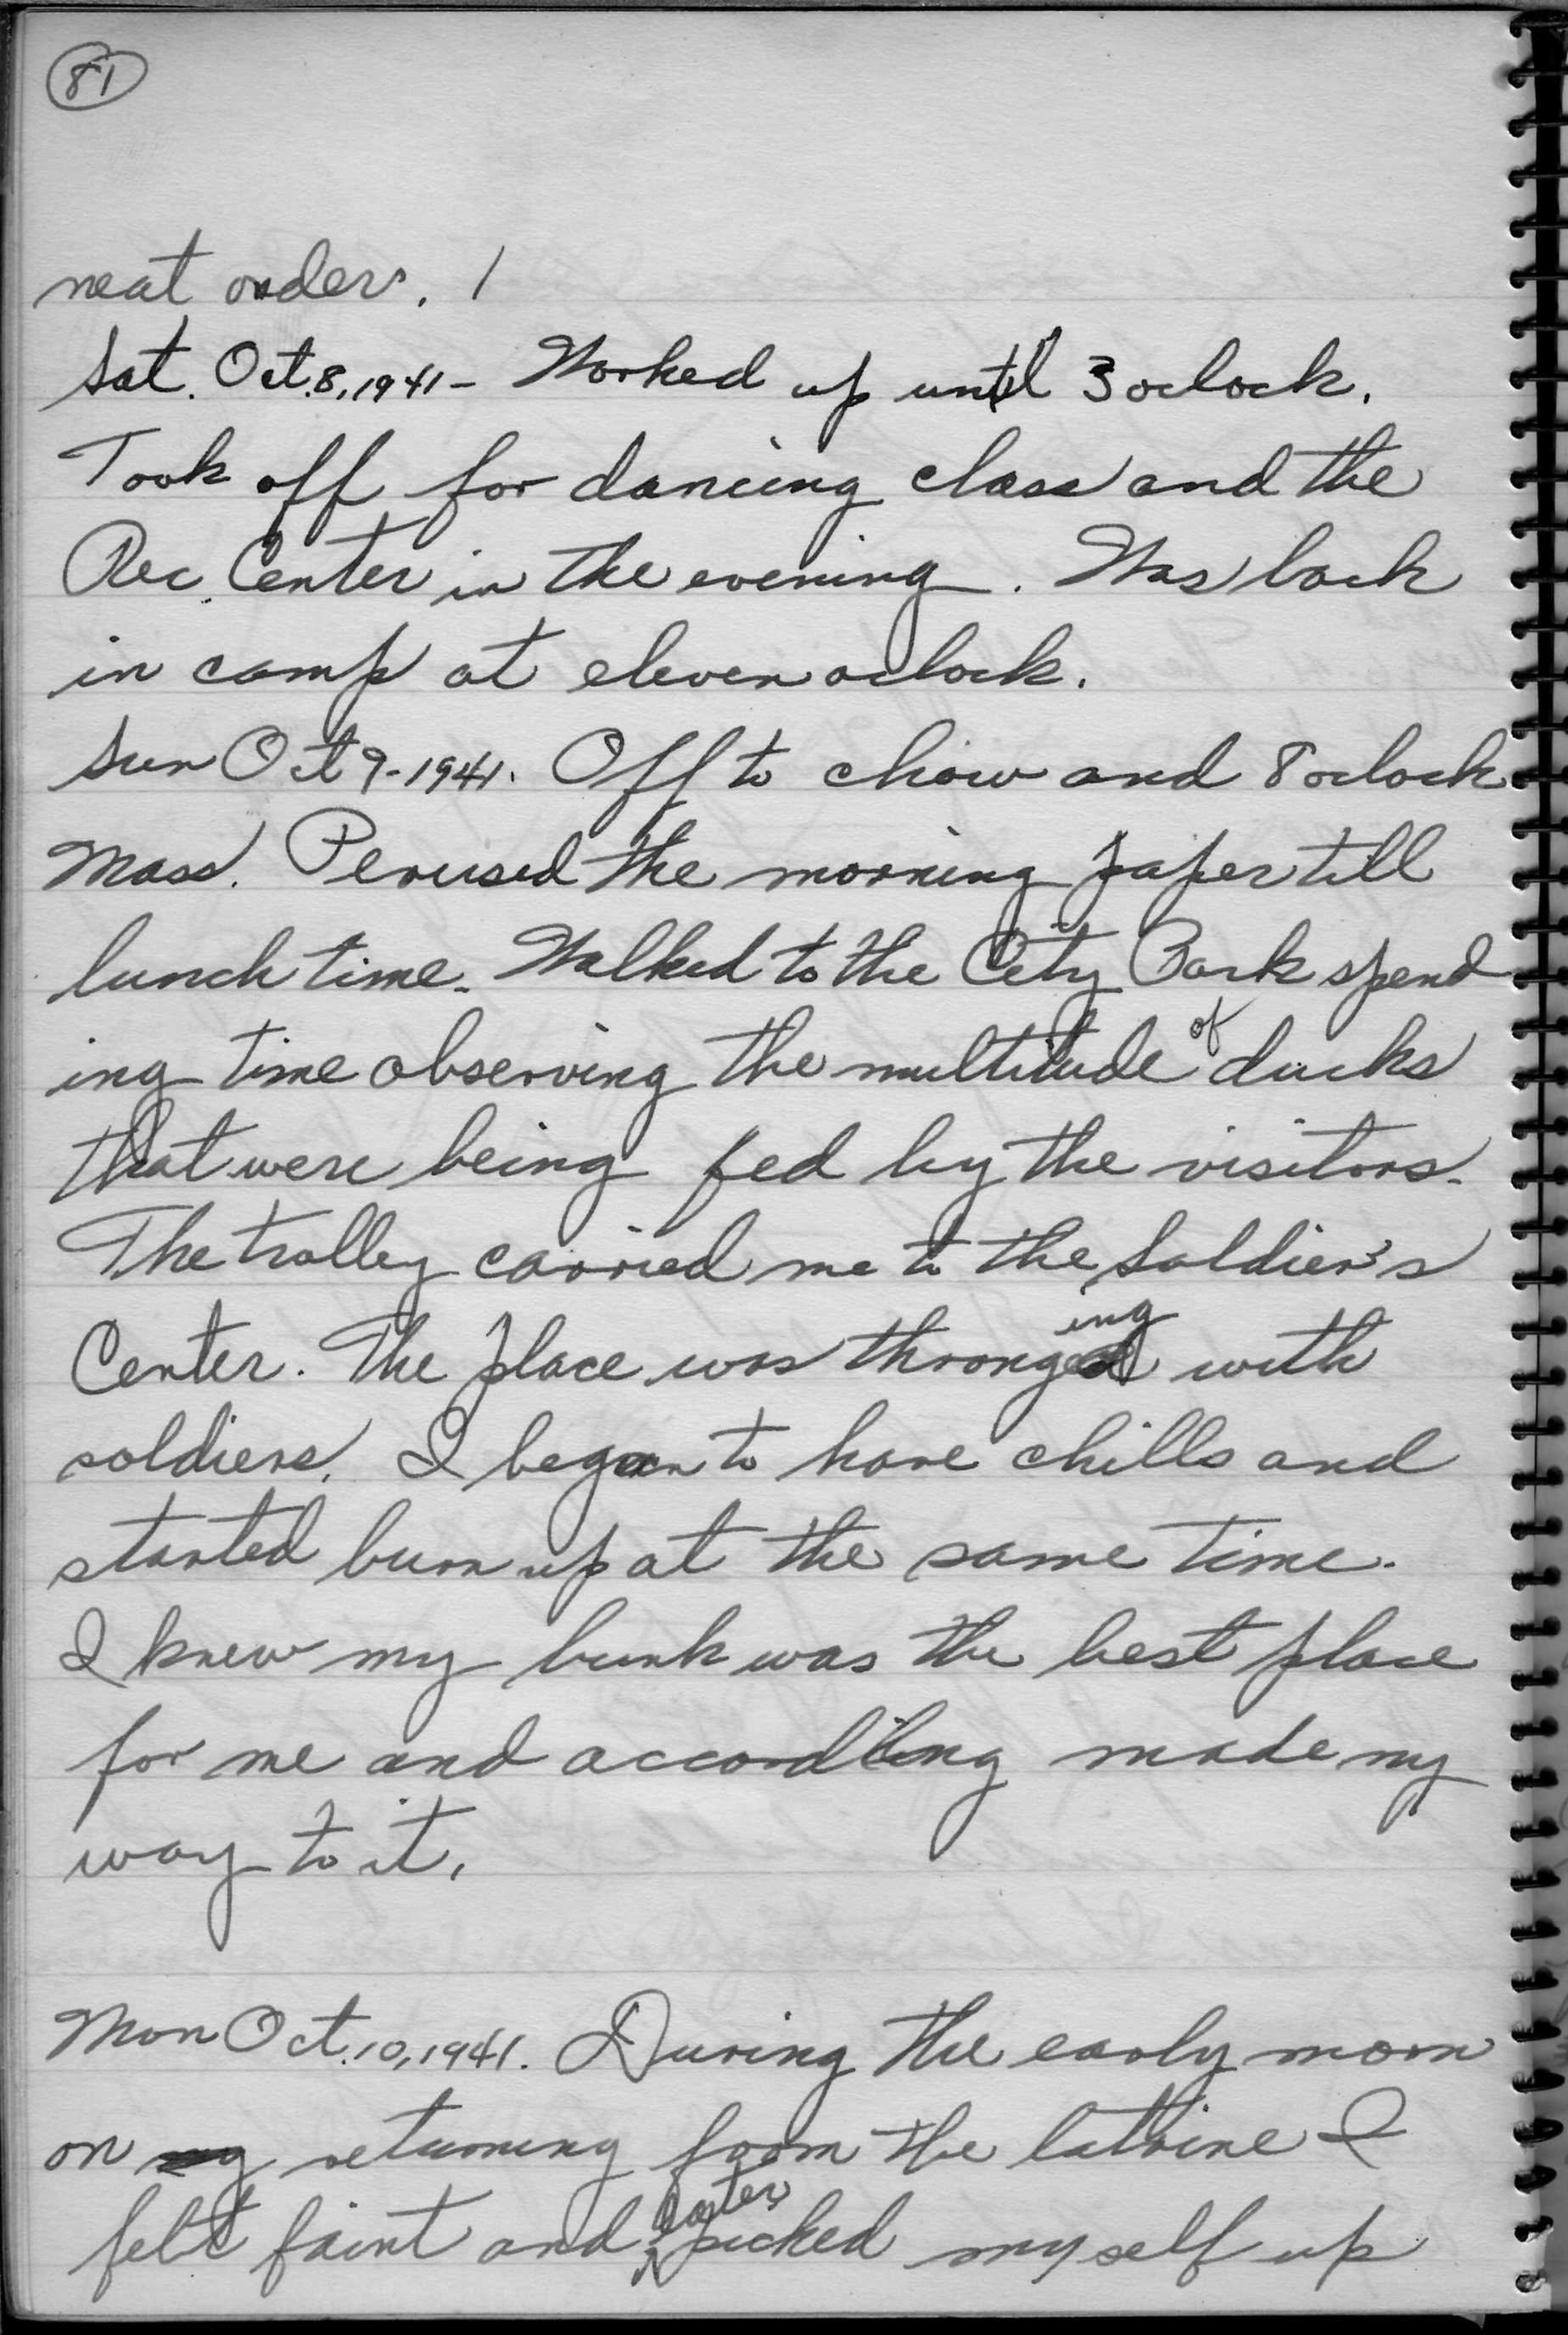 81
neat order. /
Sat. Oct. 8, 1941 - Worked up until 3 oclock.
Took off for dancing class and the
Rec. Center in the evening. Was back
in camp at eleven oclock.
Sun Oct 9 - 1941. Off to chow and 8 oclock
Mass. Perused the morning paper till
lunch time. Walked to the City Park spend
ing time observing the multitude of ducks
that were being fed by the visitors.
The trolley carried me to the Soldier's
Center. The place was thronging with
soldiers. I began to have chills and
started burn up at the same time.
I knew my bunk was the best place
for me and accordling made my
way to it.
Mon Oct. 10, 1941. During the early morn
on returning from the latrine I
felt faint and later picked myself up